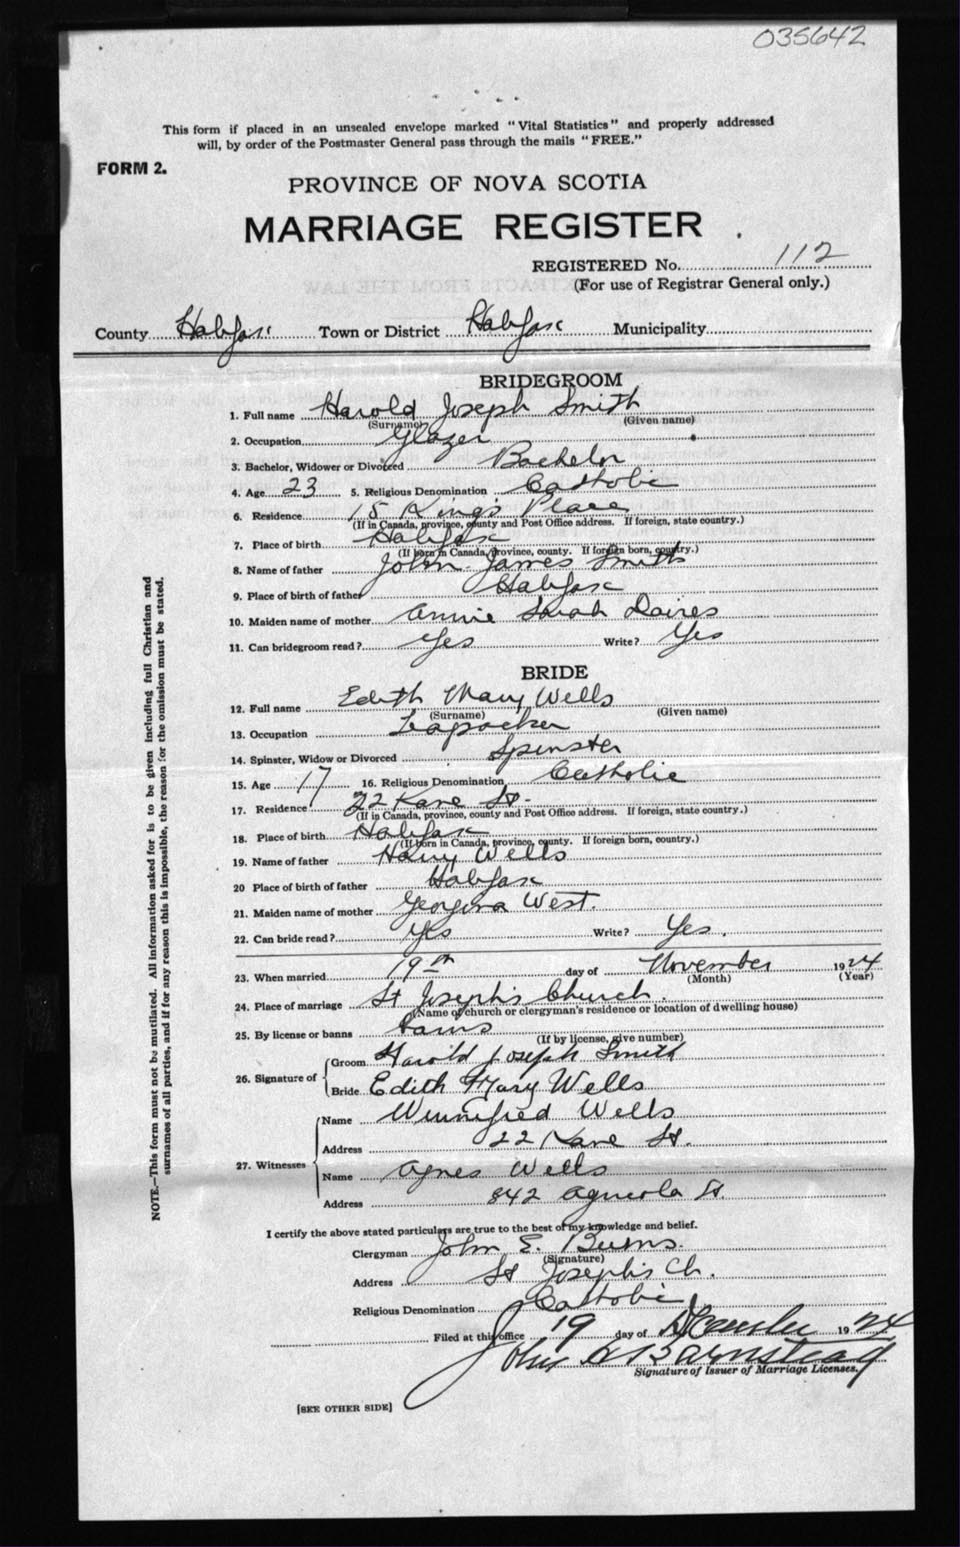 035642
This form if placed in an unsealed envelope marked "Vital Statistics" and properly addressed
will, by order of the Postmaster General pass through the mails "FREE."
FORM 2.
PROVINCE OF NOVA SCOTIA
MARRIAGE REGISTER
REGISTERED No. 112
(For use of Registrar General only.)
County Halifax Town or District Halifax Municipality
BRIDEGROOM
1. Full name Harold Joseph Smith
(Surname) (Given name)
2. Occupation Glazer
3. Bachelor, Widower or Divorced Bachelor
4. Age 23 5. Religious Denomination Catholic
6. Residence 15 Kings Place
(If in Canada, province, county and Post Office address. If foreign, state country.)
7. Place of birth Halifax
(If born in Canada, province, county. If foreign born, country.)
8. Name of father John James Smith
9. Place of birth of father Halifax
10. Maiden name of mother Annie Sarah Daires
11. Can bridegroom read? Yes Write? Yes
BRIDE
12. Full name Edith Mary Wells
(Surname) (Given name)
13. Occupation
14. Spinster, Widow or Divorced Spinster
15. Age 17 16. Religious Denomination Catholic
17. Residence 22 Kane St.
(If in Canada, province, county and Post Office address. If foreign, state country.)
18. Place of birth Halifax
(If born in Canada, province, county. If foreign born, country.)
19. Name of father Harry Wells
20 Place of birth of father Halifax
21. Maiden name of mother Georgina West.
22. Can bride read? Yes Write? Yes.
23. When married 19th day of November 1924
(Month) (Year)
24. Place of marriage St Joseph's Church.
(Name of church or clergyman's residence or location of dwelling house)
25. By license or banns
(If by license, give number)
26. Signature of Groom Harold Joseph Smith
Bride Edith Mary Wells
27. Witnesses Name Winnifred Wells
Address 22 Kane St.
Name Agnes Wells
Address 842 Agricola St.
I certify the above stated particulars are true to the best of my knowledge and belief.
Clergyman John E. Burns.
(Signature)
Address St Joseph's Ch.
Religious Denomination Catholic
Filed at this office 19 day of December 1924
John Barnstead
Signature of Issuer of Marriage Licenses.
[SEE OTHER SIDE]
NOTE.—This form must not be mutilated. All information asked for is to be given including full Christian and
surnames of all parties, and if for any reason this is impossible, the reason for the omission must be stated.